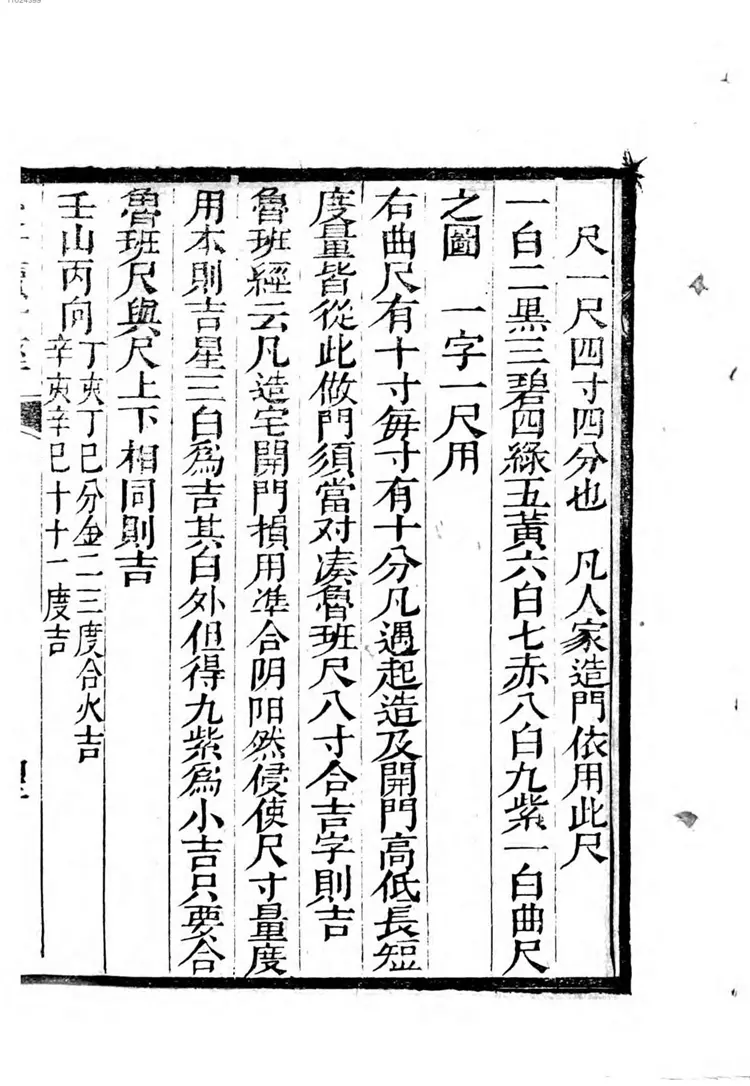 11024599
尺一尺四寸四分也　凡人家造門依用此尺
一白二黒三碧四綠五黃六白七赤八白九紫一白曲尺
之圖　一字一尺用
右曲尺有十寸每寸有十分凡遇起造及開門高低長短
度量皆從此做門須當对凑魯班尺八寸合吉字則吉
魯班經云凡造宅開門損用準合阴阳然侵使尺寸量度
用本則吉星三白爲吉其白外但得九紫爲小吉只要合
魯班尺與尺上下相同則吉
壬山丙向
丁亥丁巳分金二三度合火吉
辛亥辛巳十十一度吉